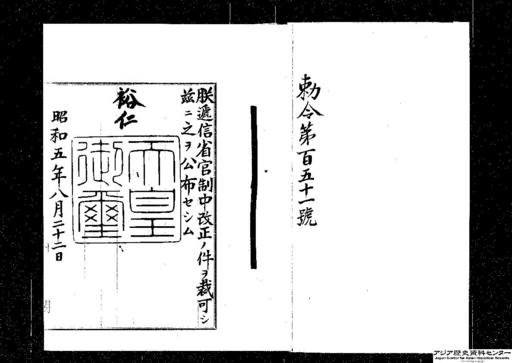 勅令第百五十一號
朕遞信省官制中改正ノ件ヲ裁可シ
茲ニ之ヲ公布セシム
裕仁
天皇御璽
昭和五年八月二十二日
アジア歴史資料センター
Japan Center for Asian Historical Records